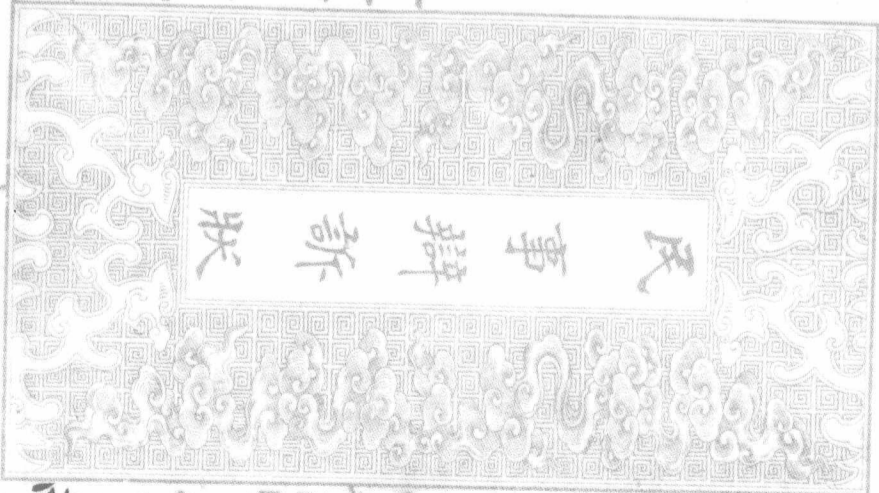 民事辯訴狀